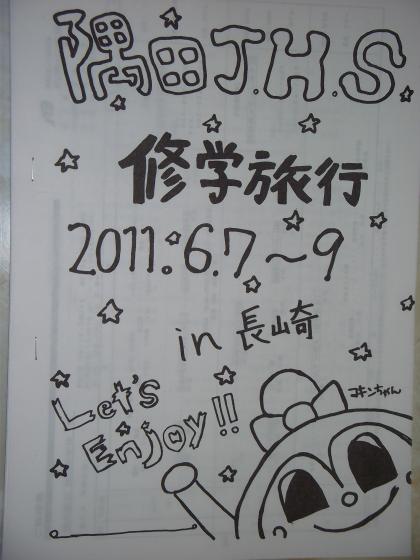 隅田J.H.S
修学旅行
2011.6.7〜9
in 長崎
コキンちゃん
Let's
Enjoy!!